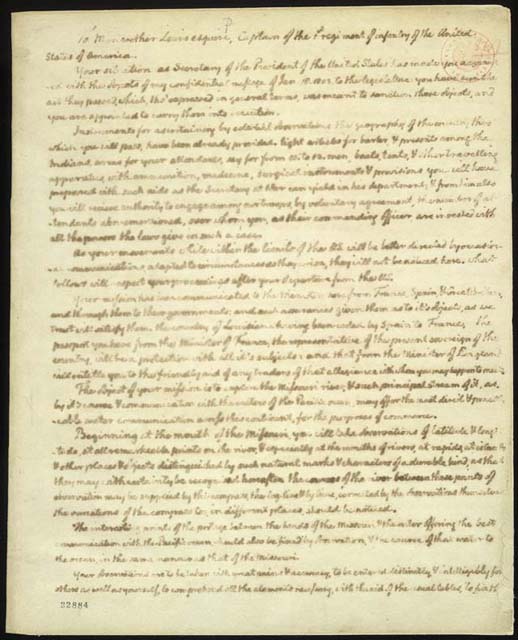 To Meriwether Lewis esquire, Captain of the 1st regiment of infantry of the United
States of America.
Your situation as Secretary of the President of the United States has made you acquaint
ed with the objects of my confidential message of Jan. 18. 1803. to the legislature. you have seen the
act they passed, which, tho' expressed in general terms, was meant to sanction those objects, and
you are appointed to carry them into execution.
Instruments for ascertaining by celestial observations the geography of the country thro'
which you will pass, have been already provided. light articles for barter & presents among the
Indians, arms for your attendants, say for from 10 to 12. men, boats, tents, & other travelling
apparatus, with ammunition, medicine, surgical instruments & provisions you will have
prepared with such aids as the Secretary at War can yield in his department; & from him also
you will receive authority to engage among our troops, by voluntary agreement, the number of at
tendants abovementioned, over whom you, as their commanding officer are invested with
all the powers the laws give in such a case.
As your movements while within the limits of the US. will be better directed by occasion
al communications, adapted to circumstances as they arise, they will not be noticed here. what
follows will respect your proceedings after your departure from the US.
Your mission has been communicated to the Ministers here from France, Spain, & Great Britain,
and through them to their governments: and such assurances given them as to it's objects, as we
trust will satisfy them. the country of Louisiana having been ceded by Spain to France, the
passport you have from the Minister of France, the representative of the present sovereign of the
country, will be a protection with all it's subjects: and that from the Minister of England
will entitle you to the friendly aid of any traders of that allegiance with whom you may happen to meet.
The object of your mission is to explore the Missouri river, & such principal stream of it, as,
by it's course & communication with the waters of the Pacific ocean, may offer the most direct & practi
cable water communication across this continent, for the purposes of commerce.
Beginning at the mouth of the Missouri, you will take observations of latitude & longi
tude, at all remarkeable points on the river, & especially at the mouths of rivers, at rapids, at islands
& other places & objects distinguished by such natural marks & characters of a durable kind, as that
they may with certainty be recognised hereafter. the courses of the river between these points of
observation may be supplied by the compass, the log-line & by time, corrected by the observations themselves.
the variations of the compass too, in different places, should be noticed.
The interesting points of the portage between the heads of the Missouri & the water offering the best
communication with the Pacific ocean should also be fixed by observation, & the course of that water to
the ocean, in the same manner as that of the Missouri.
Your observations are to be taken with great pains & accuracy, to be entered distinctly, & intelligibly for
others as well as yourself, to comprehend all the elements necessary, with the aid of the usual tables, to fix th
22884